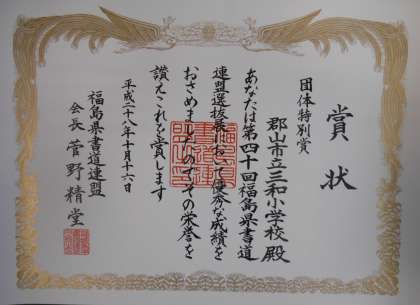 賞状
団体特別賞
郡山市立三和小学校殿
あなたは第四十回福島県書道
連盟選抜展において優秀な成績を
おさめましたのでその栄誉を
讃えこれを賞します
平成二十八年十月十六日
福島県書道連盟
会長 菅野精堂